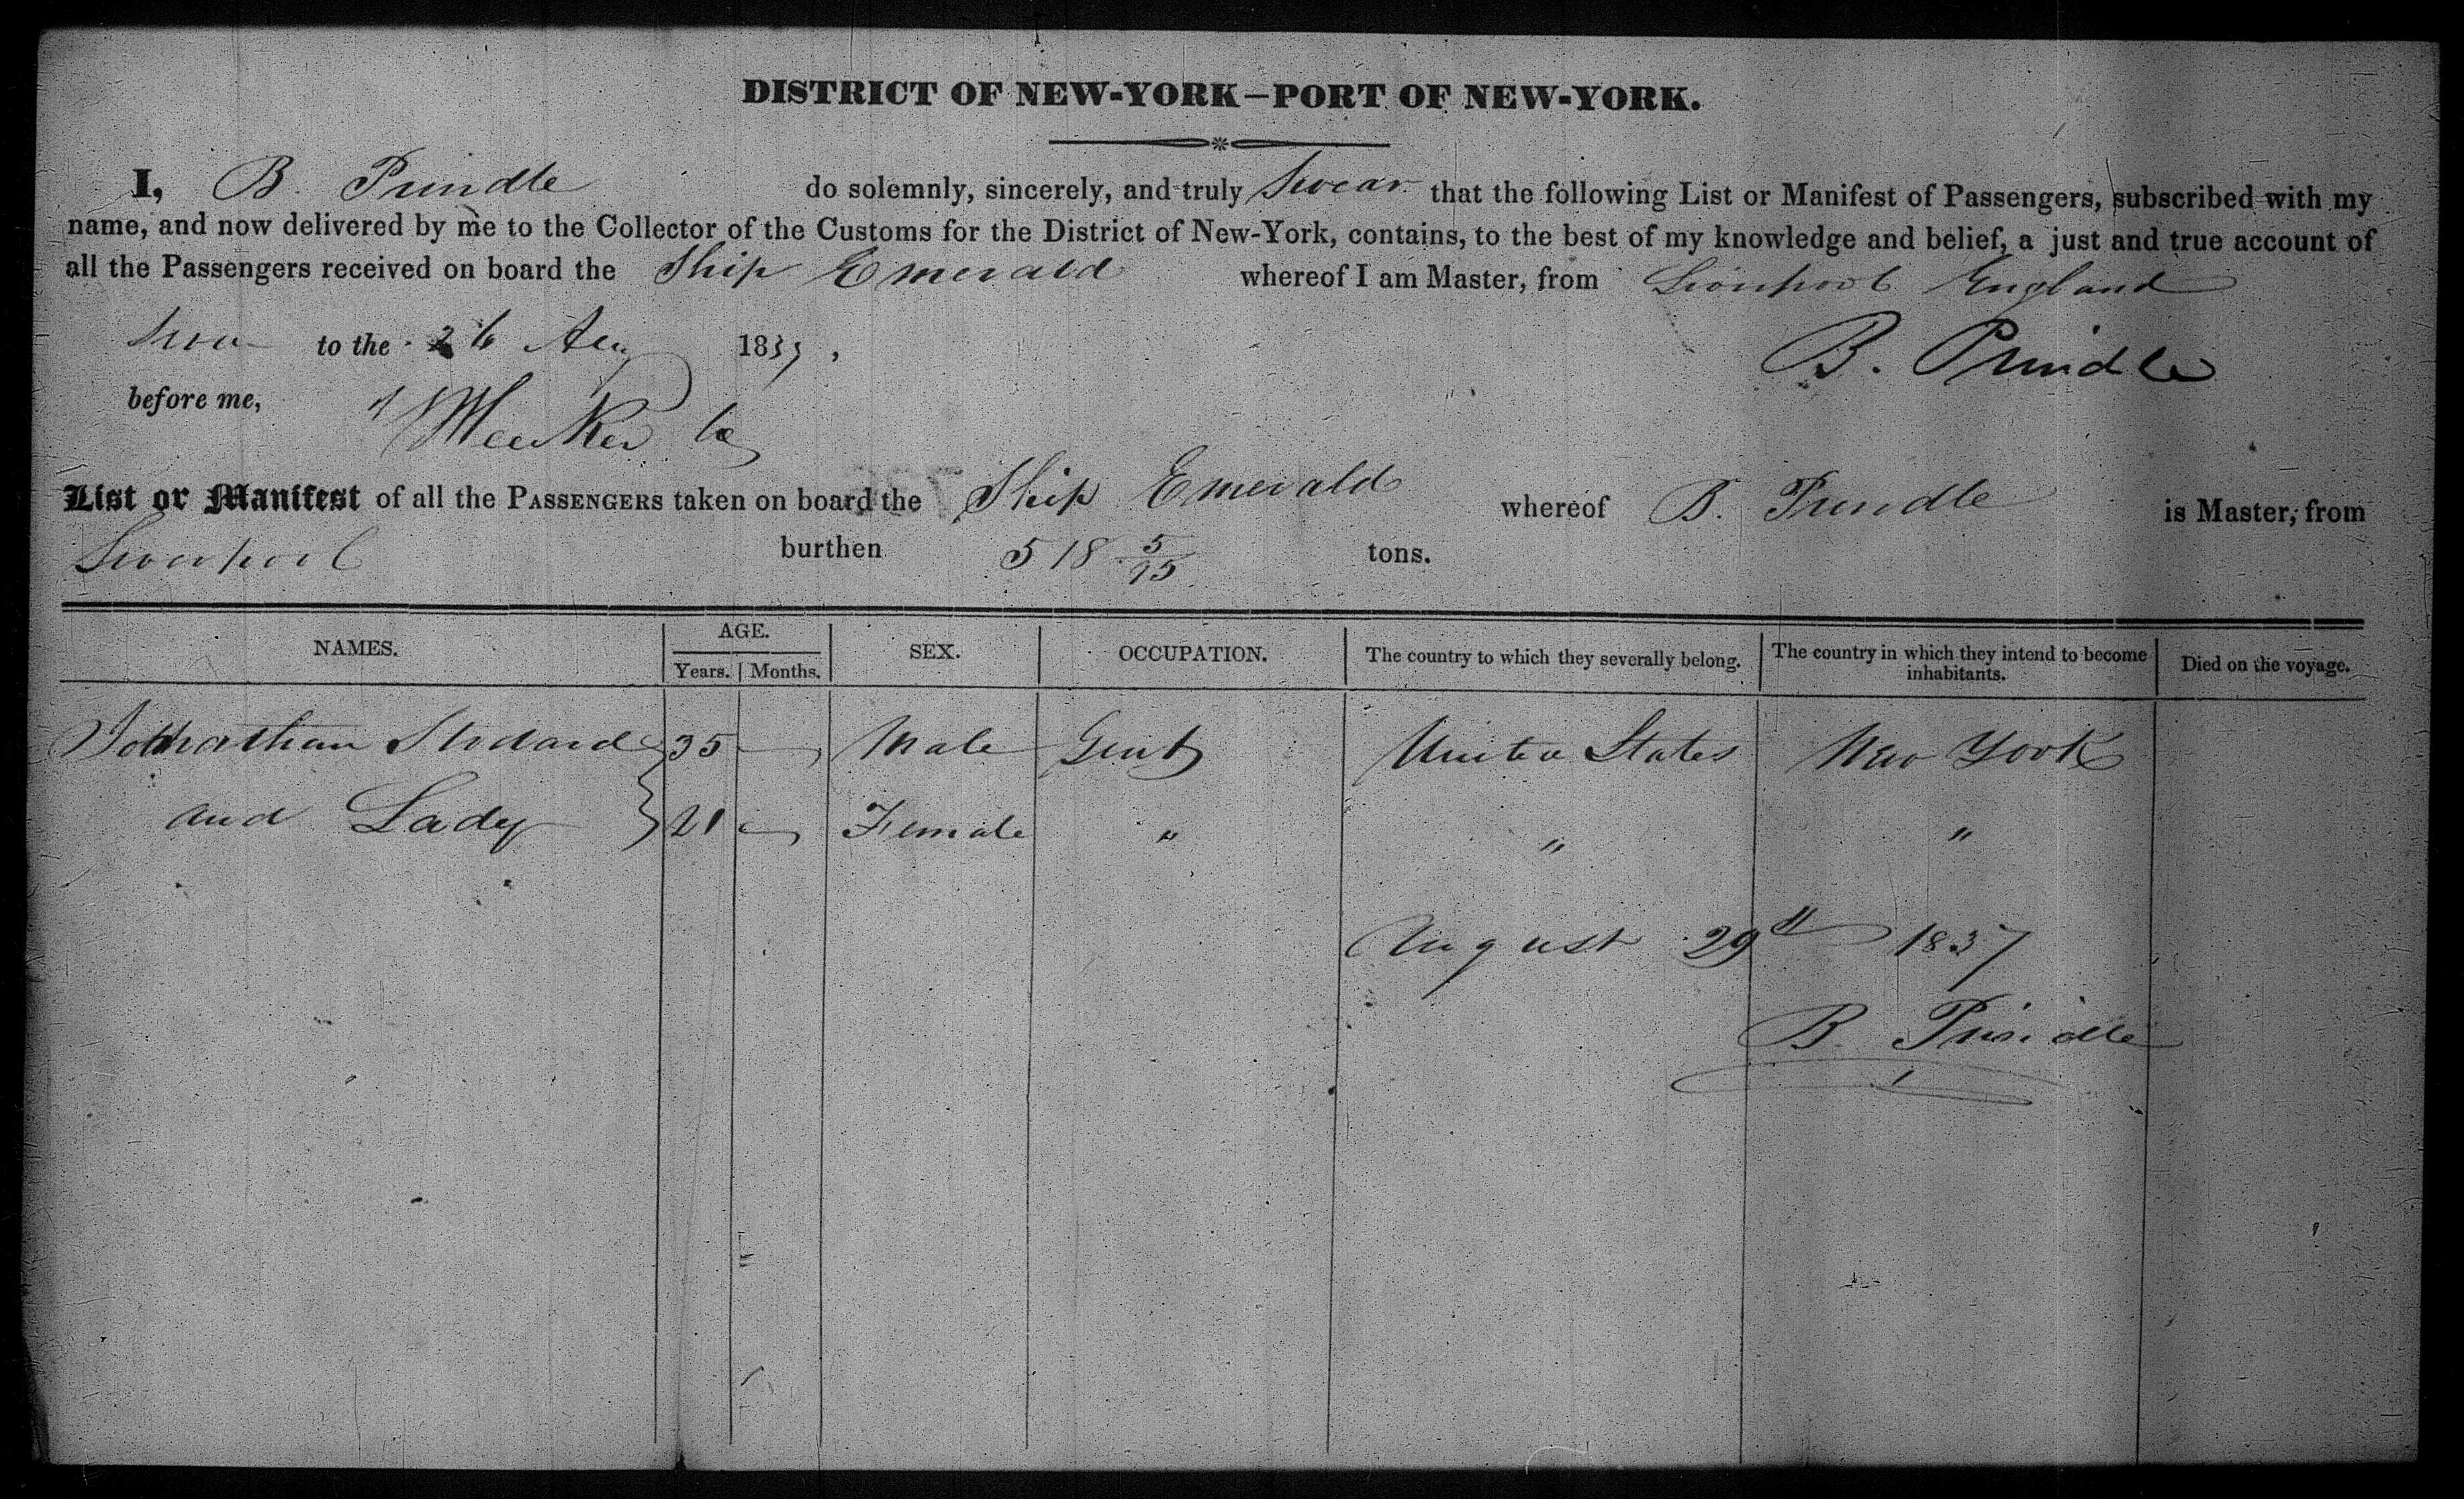 DISTRICT OF NEW-YORK—PORT OF NEW-YORK.
I, B. Prindle do solemnly, sincerely, and truly Swear that the following List or Manifest of Passengers, subscribed with my
name, and now delivered by me to the Collector of the Customs for the District of New-York, contains, to the best of my knowledge and belief, a just and true account of
all the Passengers received on board the Ship Emerald whereof I am Master, from Liverpool England
to the 26 Aug 1837
B. Prindle
before me,
List or Manifest of all the PASSENGERS taken on board the Ship Emerald whereof B. Prindle is Master, from
Liverpool burthen 518 5/95 tons.
NAMES. AGE. SEX. OCCUPATION. The country to which they severally belong. The country in which they intend to become inhabitants. Died on the voyage.
Years. Months.
35 Male Gent United States New York
and Lady 21 Female " " "
August 29th 1837
B. Prindle